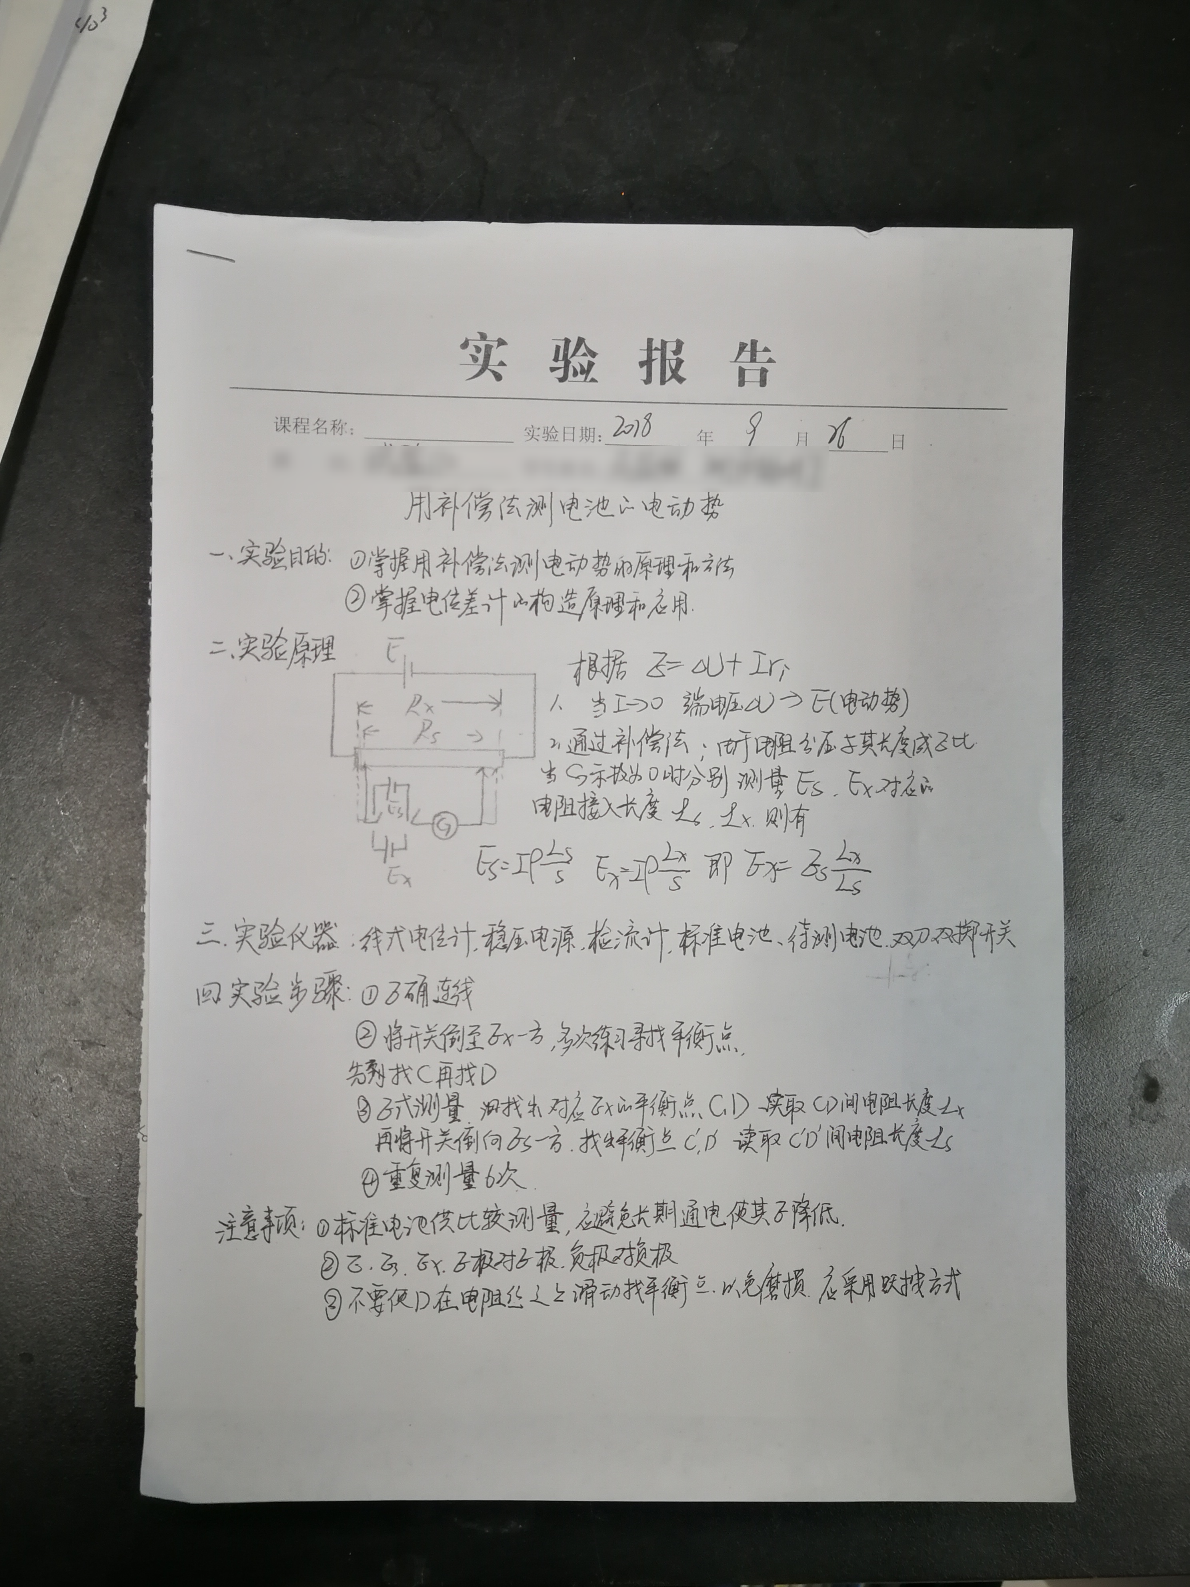 403
实验报告
课程名称: 实验日期: 2018 年 9 月 26 日
用补偿法测电池的电动势
一、实验目的: ①掌握用补偿法测电动势的原理和方法
②掌握电位差计的构造原理和应用.
二、实验原理
E
Rx
Rs
Es
G
Ex
根据 E=ΔU+Iri
1、当I→0 端电压ΔU→E(电动势)
2、通过补偿法:由于电阻分压与其长度成正比
当G示数为0时分别测量Es、Ex对应的
电阻接入长度Ls、Lx.则有
Es=Iρ Ls/S Ex=Iρ Lx/S 即 Ex=Es Lx/Ls
三、实验仪器:线式电位计,稳压电源,检流计,标准电池、待测电池、双刀双掷开关
四、实验步骤:①正确连线
②将开关倒至Ex一方,多次练习寻找平衡点,
先找C再找D
③正式测量 找出对应Ex的平衡点C,D 读取CD间电阻长度Lx
再将开关倒向Es一方.找出平衡点C',D' 读取C'D'间电阻长度Ls
④重复测量6次
注意事项:①标准电池供比较测量,应避免长期通电使其降低.
②E、Es、Ex、正极对正极.负极对负极
③不要使D在电阻丝上滑动找平衡点.以免磨损.应采用跃接方式